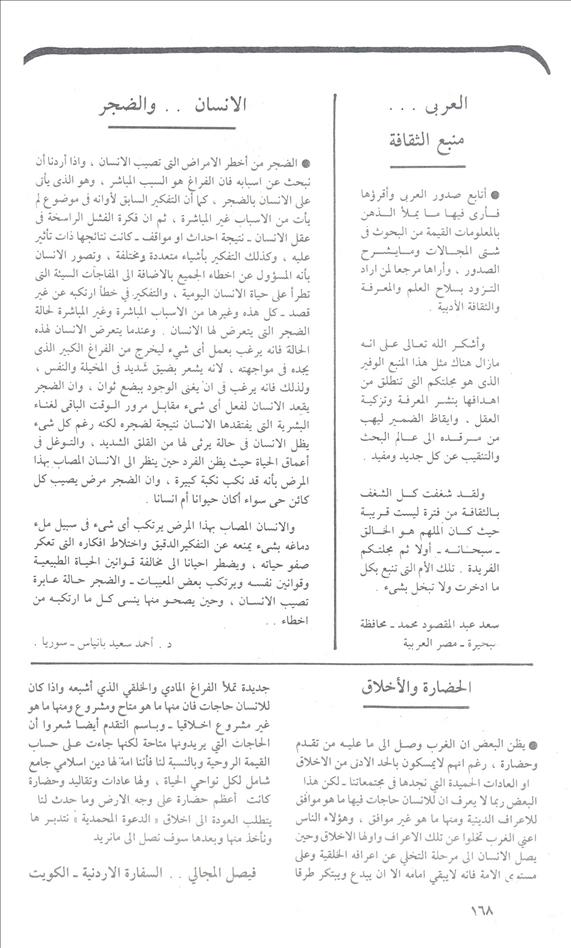 العربى . . .
منبع الثقافة
● أتابع صدور العربى وأقرؤها
فـأرى فيهـا مـا يمـلأ الـذهن
بالمعلومات القيمة من البحوث فى
شـتى المجـالات ومـايشـرح
الصدور ، وأراها مرجعا لمن اراد
التـزود بسلاح العلم والمعـرفـة
والثقافة الأدبية .
وأشكـر الله تعـالى عـلى انـه
مازال هناك مثل هذا المنبع الوفير
الذى هو مجلتكم التى تنطلق من
اهدافها بنشر المعرفـة وتزكيـة
العقل ، وايقاظ الضمير ليهب
من مـرقـده الى عـالم البحث
والتنقيب عن كل جديد ومفيد .
ولقـد شغفت كـل الشغف
بـالثقافـة من فترة ليست قـريبـة
حيث كـان الملهم هـو الخـالق
ـ سبحـانـه ـ أولا ثم مجلتكم
الفريدة . تلك الأم التى تنبع بكل
ما ادخرت ولا تبخل بشىء .
سعد عبد المقصود محمد ـ محافظة
بحيرة ـ مصر العربية
الانسان . . والضجر
● الضجر من أخطر الامراض التى تصيب الانسان ، واذا أردنا أن
نبحث عن اسبابه فان الفراغ هو السبب المباشر ، وهو الذى يأتى
على الانسان بالضجر ، كما أن التفكير السابق لأوانه فى موضوع لم
يأت من الاسباب غير المباشرة ، ثم ان فكرة الفشل الراسخة فى
عقل الانسان ـ نتيجة احداث او مواقف ـ كانت نتائجها ذات تأثير
عليه ، وكذلك التفكير بأشياء متعددة ومختلفة ، وتصور الانسان
بأنه المسؤول عن اخطاء الجميع بالاضافة الى المفاجآت السيئة التى
تطرأ على حياة الانسان اليومية ، والتفكير في خطأ ارتكبه عن غير
قصد ـ كل هذه وغيرها من الاسباب المباشرة وغير المباشرة لحالة
الضجر التى يتعرض لها الانسان . وعندما يتعرض الانسان لهذه
الحالة فانه يرغب بعمل أى شيء ليخرج من الفراغ الكبير الذى
يجده فى مواجهته ، لانه يشعر بضيق شديد فى المخيلة والنفس ،
ولذلك فانه يرغب فى ان يغنى الوجود ببضع ثوان ، وان الضجر
يقعد الانسان لفعل أى شىء مقابل مرور الوقت الباقى لغناء
البشرية التى يفتقدها الانسان نتيجة لضجره لكنه رغم كل شىء
يظل الانسان فى حالة يرثى لها من القلق الشديد ، والتوغل فى
أعماق الحياة حيث يظن الفرد حين ينظر الى الانسان المصاب بهذا
المرض بأنه قد نكب نكبة كبيرة ، وان الضجر مرض يصيب كل
كائن حى سواء أكان حيوانا أم انسانا .
والانسان المصاب بهذا المرض يرتكب أى شىء فى سبيل ملء
دماغه بشىء يمنعه عن التفكيرالدقيق واختلاط افكاره التى تعكر
صفو حياته ، ويضطر احيانا الى مخالفة قوانين الحياة الطبيعية
وقوانين نفسه ويرتكب بعض المعيبات ـ والضجر حالة عابرة
تصيب الانسان ، وحين يصحو منها ينسى كل ما ارتكبه من
اخطاء . .
د . أحمد سعيد بانياس ـ سوريا .
الحضارة والأخلاق
● يظن البعض ان الغرب وصل الى ما عليه من تقدم
وحضارة ، رغم انهم لايمسكون بالحد الادنى من الاخلاق
او العادات الحميدة التي نجدها في مجتمعاتنا ـ لكن هذا
البعض ربما لا يعرف ان للانسان حاجات فيها ما هو موافق
للاعراف الدينية ومنها ما هو غير موافق ، وهؤلاء الناس
اعني الغرب تخلوا عن تلك الاعراف واولها الاخلاق وحين
يصل الانسان الى مرحلة التخلي عن اعرافه الخلقية وعلى
مستوى الامة فانه لايبقي امامه الا ان يبدع ويبتكر طرقا
جديدة تملأ الفراغ المادي والخلقي الذي أشبعه واذا كان
للانسان حاجات فان منها ما هو متاح ومشروع ومنها ما هو
غير مشروع اخلاقيا ـ وباسم التقدم أيضا شعروا أن
الحاجات التي يريدونها متاحة لكنها جاءت على حساب
القيمة الروحية وبالنسبة لنا فأننا امة لها دين اسلامي جامع
شامل لكل نواحي الحياة ، ولها عادات وتقاليد وحضارة
كانت أعظم حضارة على وجه الارض وما حدث لنا
يتطلب العودة الى اخلاق « الدعوة المحمدية » نتدبرها
ونأخذ منها وبعدها سوف نصل الى مانريد
فيصل المجالي . . السفارة الاردنية ـ الكويت
١٦٨